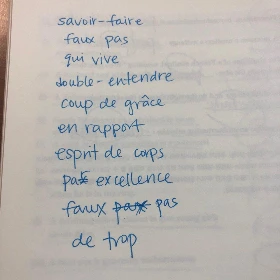 savoir-faire
faux pas
qui vive
double-entendre
coup de grâce
en rapport
esprit de corps
par excellence
faux pax pas
de trop